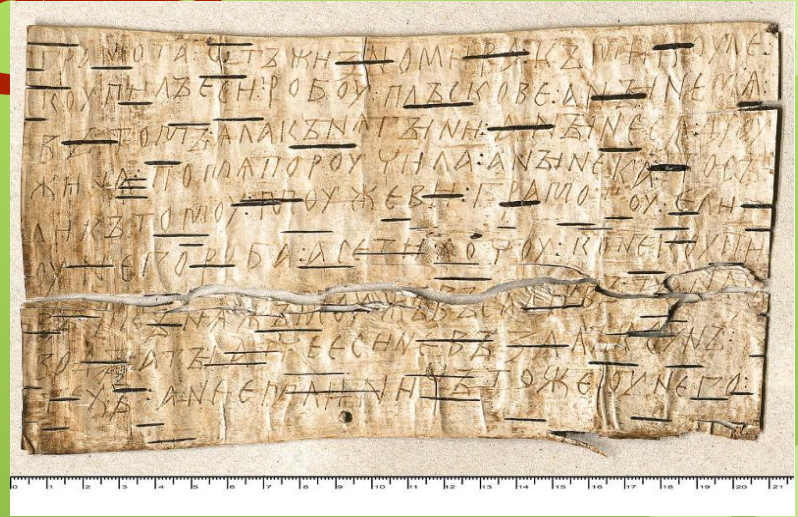 ГРАМОТА : ѠТЪ ЖИЗНОМИРА : КЪ МИКОУЛЕ :
КОУПИЛЪ ЕСИ : РОБОУ : ПЛЪСКОВЕ : А НЫНЕ МѦ :
ВЪ ТОМЪ : ѦЛА КЪНѦГЫНИ : А НЫНЕ СѦ ДРОУ
ЖИНА : ПО МѦ ПОРОУЧИЛА : А НЫНЕ КА : ПОСЪ
ЛИ КЪ ТОМОУ : МОУЖЕВИ : ГРАМОТОУ : ЕЛИ
ОУ НЕГО РОБА : А СЕ ТИ ХОЧОУ : КОНЕ КОУПИ
КЪНѦЖЪ МОУЖЪ ВЪСАДИВЪ
ВОДЪ : А ТЫ АТЧЕ ЕСИ НЕ ВЪЗАЛЪ КОУНЪ
ТЕХЪ : А НЕ ЕМЛИ : НИЧЪТО ЖЕ ОУ НЕГО :
0 1 2 3 4 5 6 7 8 9 10 11 12 13 14 15 16 17 18 19 20 21